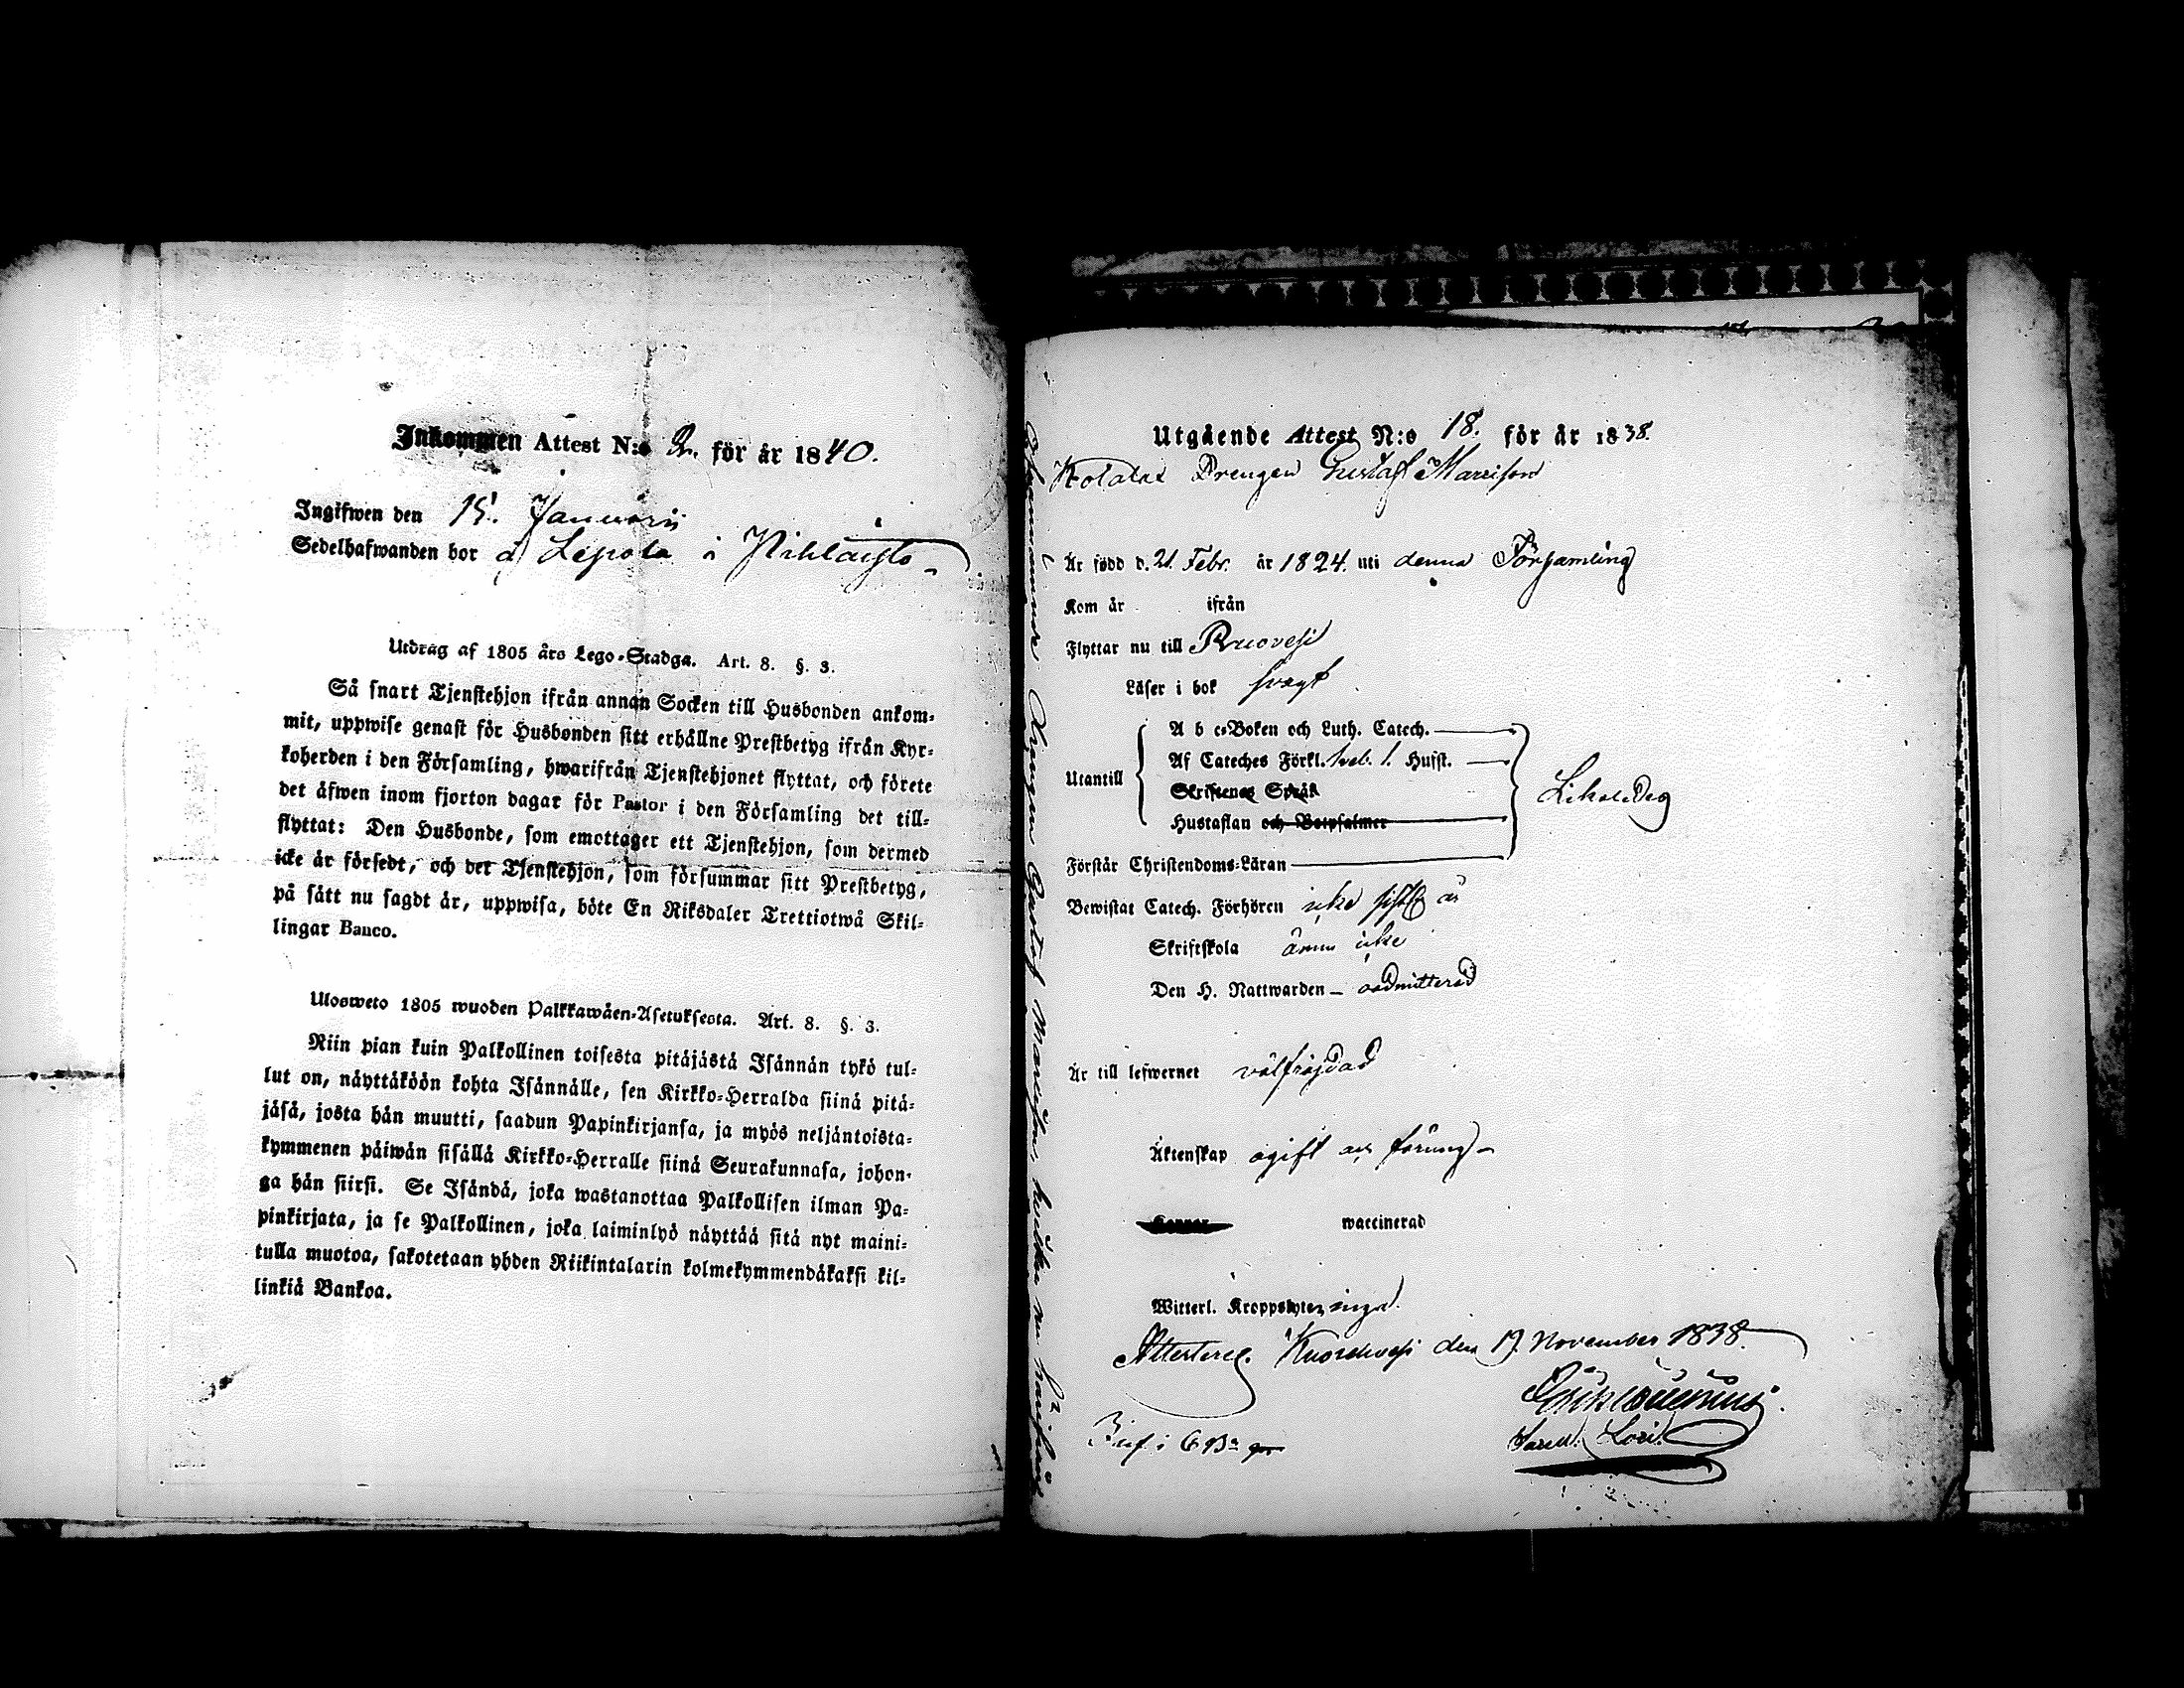 Inkommen Attest N:o 2. för år 1840.
Ingifwen den 15. Januarii
Sedelhafwanden bor å Lepola i
Utdrag af 1805 års Lego-Stadga. Art. 8. §. 3.
Så snart Tjenstehjon ifrån annan Socken till Husbonden ankom-
mit, uppwise genast för Husbonden sitt erhållne Prestbetyg ifrån Kyr-
koherden i den Församling, hwarifrån Tjenstehjonet flyttat, och förete
det äfwen inom fjorton dagar för Pastor i den Församling det till-
flyttat: Den Husbonde, som emottager ett Tjenstehjon, som dermed
icke är försedt, och det Tjenstehjon, som försummar sitt Prestbetyg,
på sätt nu sagdt är, uppwisa, böte En Riksdaler Trettiotwå Skil-
lingar Banco.
Ulosweto 1805 wuoden Palkkawäen-Asetuksesta. Art. 8. §. 3.
Niin pian kuin Palkollinen toisesta pitäjästä Isännän tykö tul-
lut on, näyttäköön kohta Isännälle, sen Kirkko-Herralda siinä pitä-
jäsä, josta hän muutti, saadun Papinkirjansa, ja myös neljäntoista-
kymmenen päiwän sisällä Kirkko-Herralle siinä Seurakunnasa, johon-
ga hän siirsi. Se Isändä, joka wastanottaa Palkollisen ilman Pa-
pinkirjata, ja se Palkollinen, joka laiminlyö näyttää sitä nyt maini-
tulla muotoa, sakotetaan yhden Riikintalarin kolmekymmendäkaksi kil-
linkiä Bankoa.
Utgående Attest N:o 18. för år 1838.
Drengen Gustaf
Är född d. 21. Febr. år 1824. uti denna Församling
Kom år ifrån
Flyttar nu till Ruovesi
Läser i bok svagt
Utantill
A b c-Boken och Luth. Catech.
Af Cateches Förkl. 1. Hufst.
Skriftenes Språk
Hustaflan och Botpsalmer
Likaledes
Förstår Christendoms-Läran
Bewistat Catech. Förhören icke sistl. år
Skriftskola ännu icke
Den H. Nattwarden – oadmitterad
Är till lefwernet välfräjdad
Äktenskap ogift
Koppor waccinerad
Witterl. Kroppslyten inga.
Attesterar. den 19. November 1838.
Drengen Gustaf